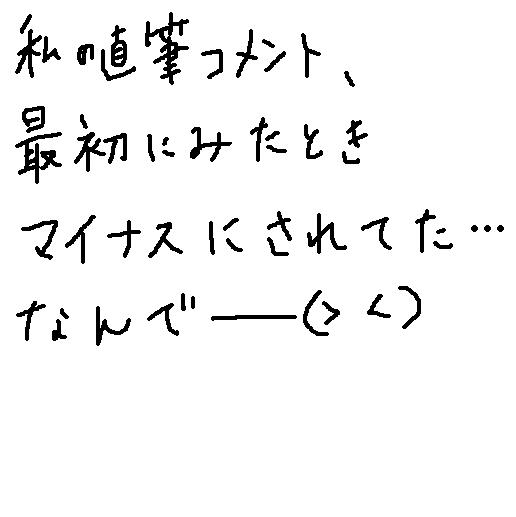 私の直筆コメント、
最初にみたとき
マイナスにされてた…
なんで――(> <)